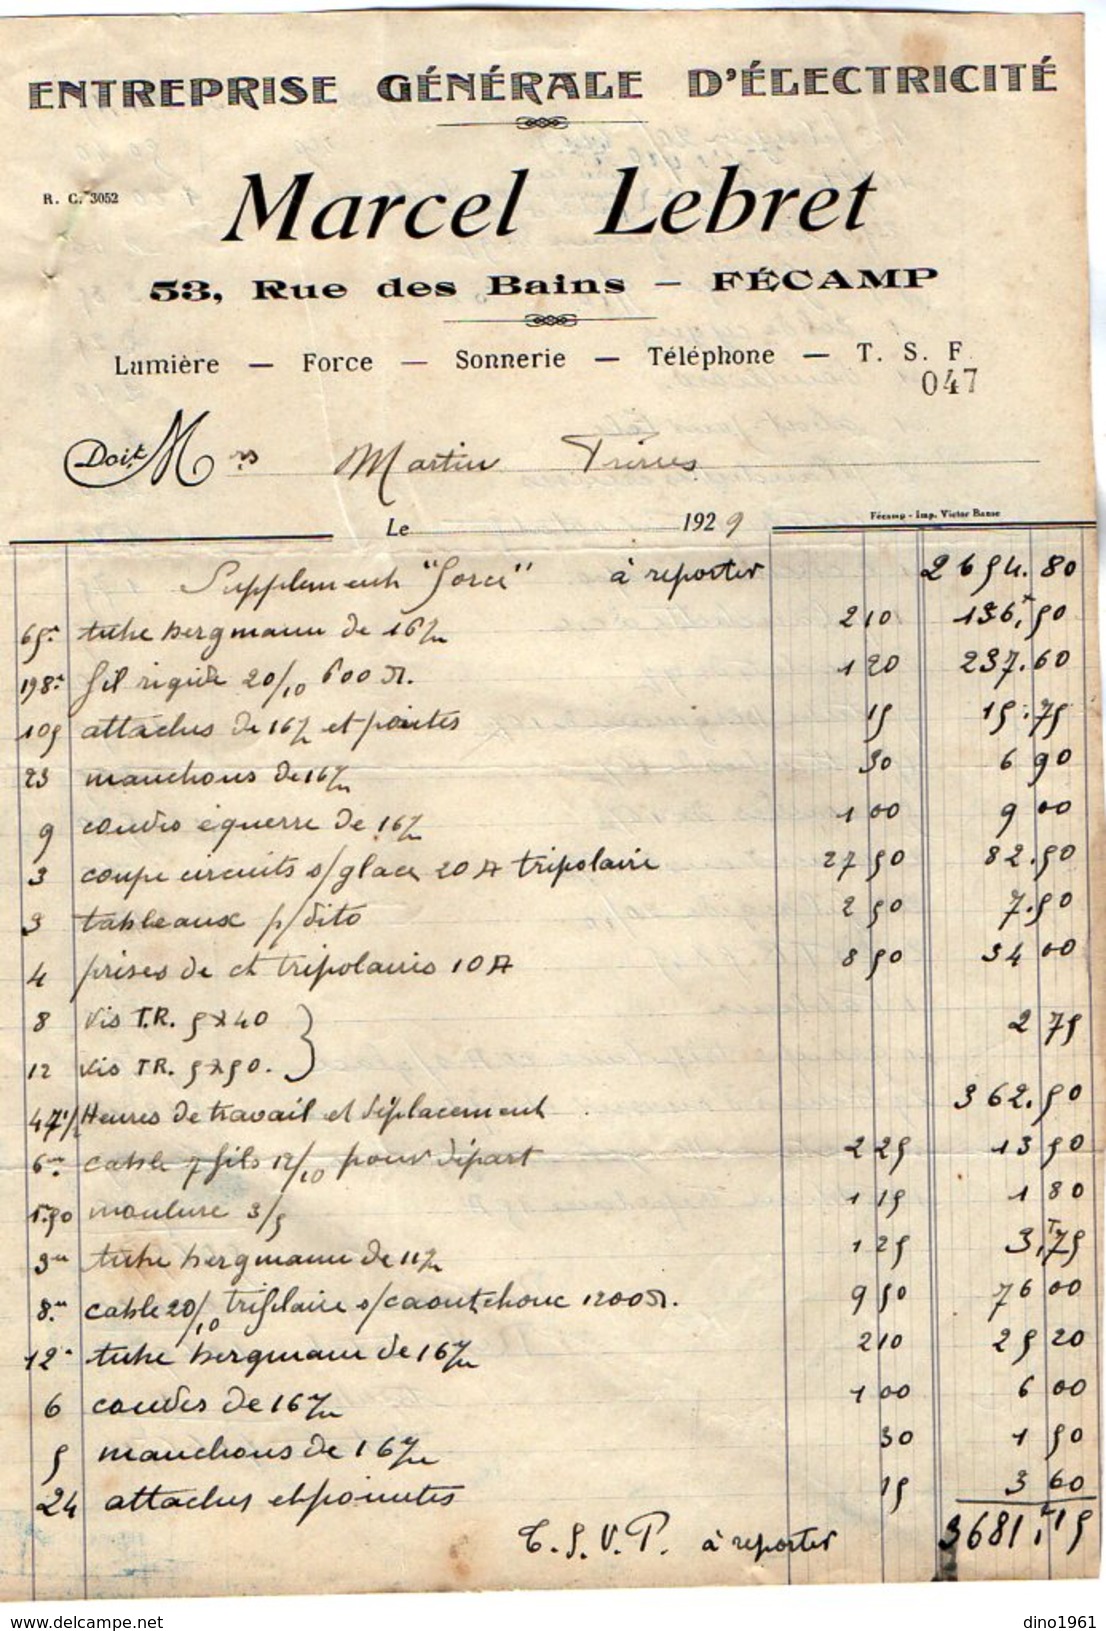 ENTREPRISE GÉNÉRALE D'ÉLECTRICITÉ
R. C. 3052
Marcel Lebret
53, Rue des Bains – FÉCAMP
Lumière — Force — Sonnerie — Téléphone — T. S. F.
047
Doit Mrs Martin Frères
Le 1929
Fécamp - Imp. Victor Banse
Supplément "force" à reporter 2654.80
65m tube bergmann de 16m/m 2 10 136,50
198m fil rigide 20/10 600 Ω. 1 20 237.60
105 attaches de 16m/m et pointes 15 15.75
23 manchons de 16m/m 30 6 90
9 coudes équerre de 16m/m 1 00 9 00
3 coupe circuits s/glace 20 A tripolaire 27 50 82.50
3 tableaux p/dito 2 50 7.50
4 prises de ct tripolaires 10 A 8 50 34 00
8 vis T.R. 5x40 } 2 75
12 vis TR. 5x50. }
47 1/2 Heures de travail et déplacement 362.50
6m cable 7 fils 12/10 pour départ 2 25 13 50
1.50 moulure 3/5 1 15 1 80
3m tube bergmann de 11m/m 1 25 3,75
8m cable 20/10 triplaire s/caoutchouc 1200Ω. 9 50 76 00
12m tube bergmann de 16m/m 2 10 25 20
6 coudes de 16m/m 1 00 6 00
5 manchons de 16m/m 30 1 50
24 attaches et pointes 15 3 60
T. S. V. P. à reporter 3681,15
www.delcampe.net
dino1961